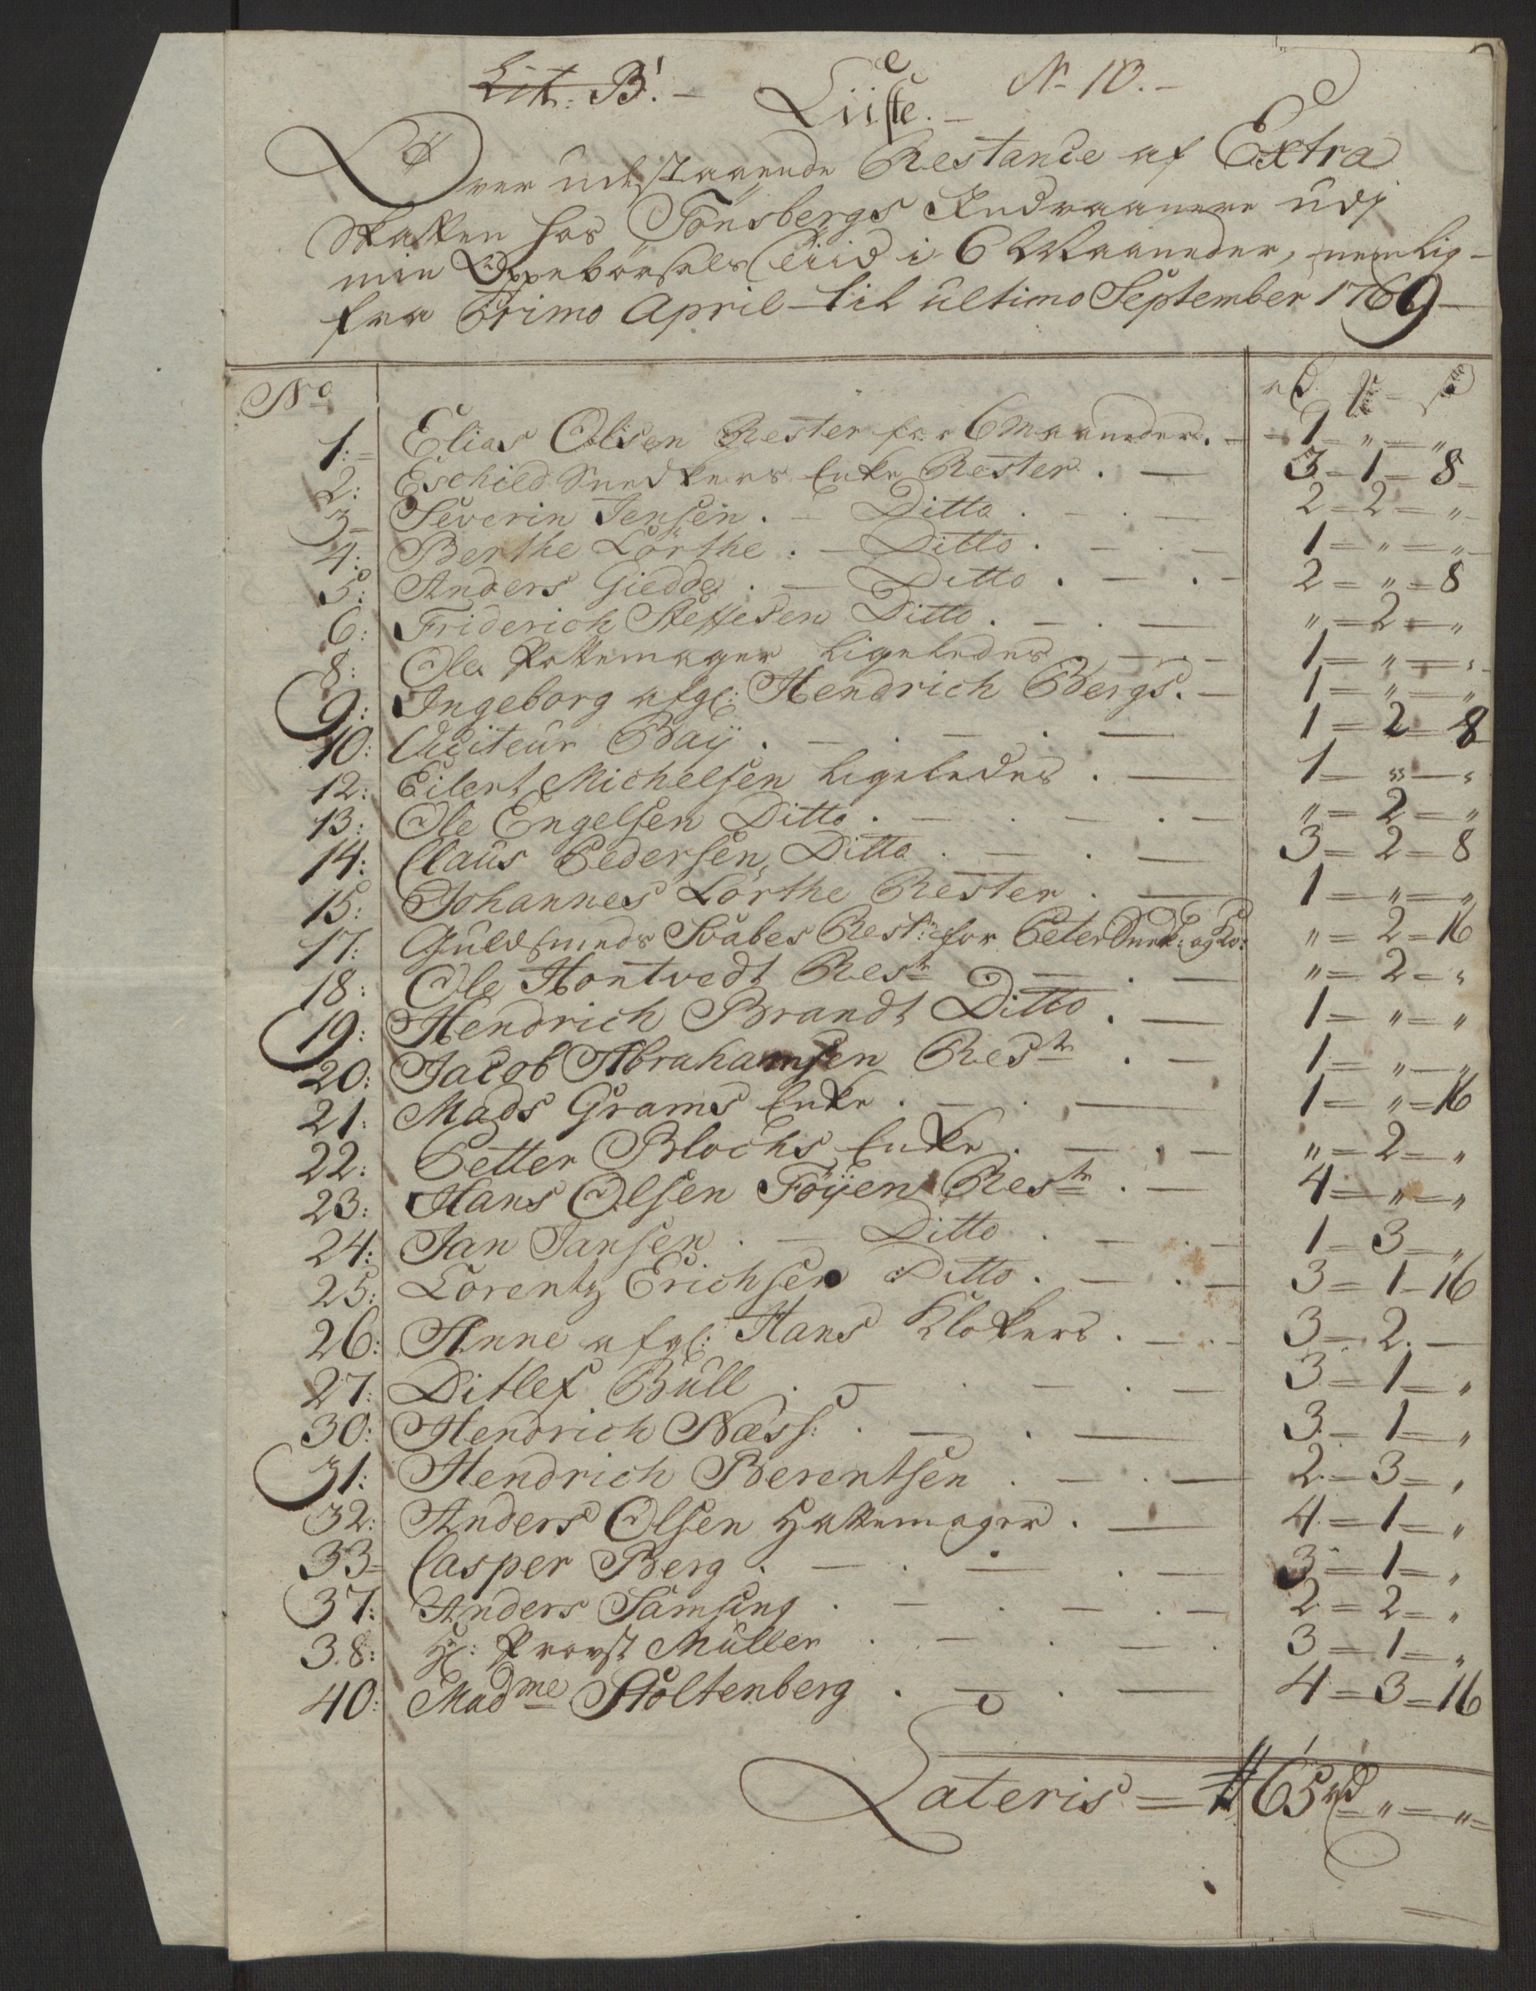 Lit: B! - No 10. -
Liiste. -
Over udestaaende Restance af Extra
Skatten hos Tönsbergs Indvaanere udj
min Oppebörsels Tiid i 6 Maaneder, nemlig -
fra Primo April - til ultimo September 1769 -
No rd
1: Elias Olisen Rester for 6 Maaneder. - 1 - " - "
2: Eschild Snedkers Enke Rester. - 3 - 1 - 8 -
3 - Severin Jensen. - Ditto. - . - 2 - 2 - "
4: Berthe Lörthe. - Ditto. - . - 1 - " - "
5: Anders Giedde. - Ditto. - . - 2 = " = 8
6: Friderich Steffesen Ditto. - . - " = 2 = "
8: Ole Pottemager ligeledes . - . - 1 = " = "
9: Ingeborg afgl: Hendrich Bergs. - 1 = " = "
10: Auditeur Baÿ. - . - . - 1 = 2 = 8
12: Eilert Michelsen ligeledes. - 1 - " - "
13: Ole Engelsen Ditto. - . - . - " = 2 = "
14: Claus Pedersen, Ditto. - . - 3 = 2 = 8
15: Johannes Lörthe Rester. - 1 = " = "
17: Guldsmeds Svabes Restr. for Peter og " = 2 = 16
18: Ole Hontvedt Restr - . - " = 2 = "
19: Hendrich Brandt Ditto. - 1 = " = "
20: Jacob Abrahamsen Restr . - 1 = " - "
21: Mads Grams Enke. - . - 1 = " = 16
22: Petter Blochs Enke. - . - " = 2 = "
23: Hans Olsen Föÿen Restr. - 4 = " = "
24: Jan Jansen. - Ditto. - . - 1 = 3 = "
25: Lorentz Erichsen Ditto. - . - 3 = 1 - 16
26: Anne afgl: Hans Klokers. - . - 3 - 2. -
27: Ditlef Bull . - . - . - 3 - 1 = "
30: Hendrich Næss: . - . - 3 - 1 = "
31: Hendrich Berentsen . - . - 2 - 3 = "
32: Anders Olsen Hattemager. - 4 - 1 = "
33 - Casper Berg. - . - . - 3 = 1 = "
37: Anders Samsing . - . - . - 2 = 2 = "
38: Hr: Provst Müller . - . - . 3 = 1 = "
40: Madme Stoltenberg . - . - 4 = 3 = 16
Lateris = 65 rd = " = " =